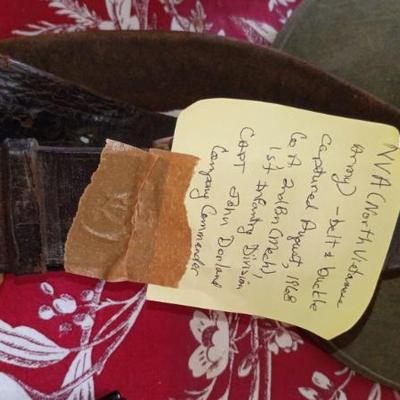 NVA (North Vietnamese
Army) - belt & buckle
Captured August, 1968
Co A 2nd Bn (Mech),
1st Infantry Division
CAPT John Donland
Company Commander